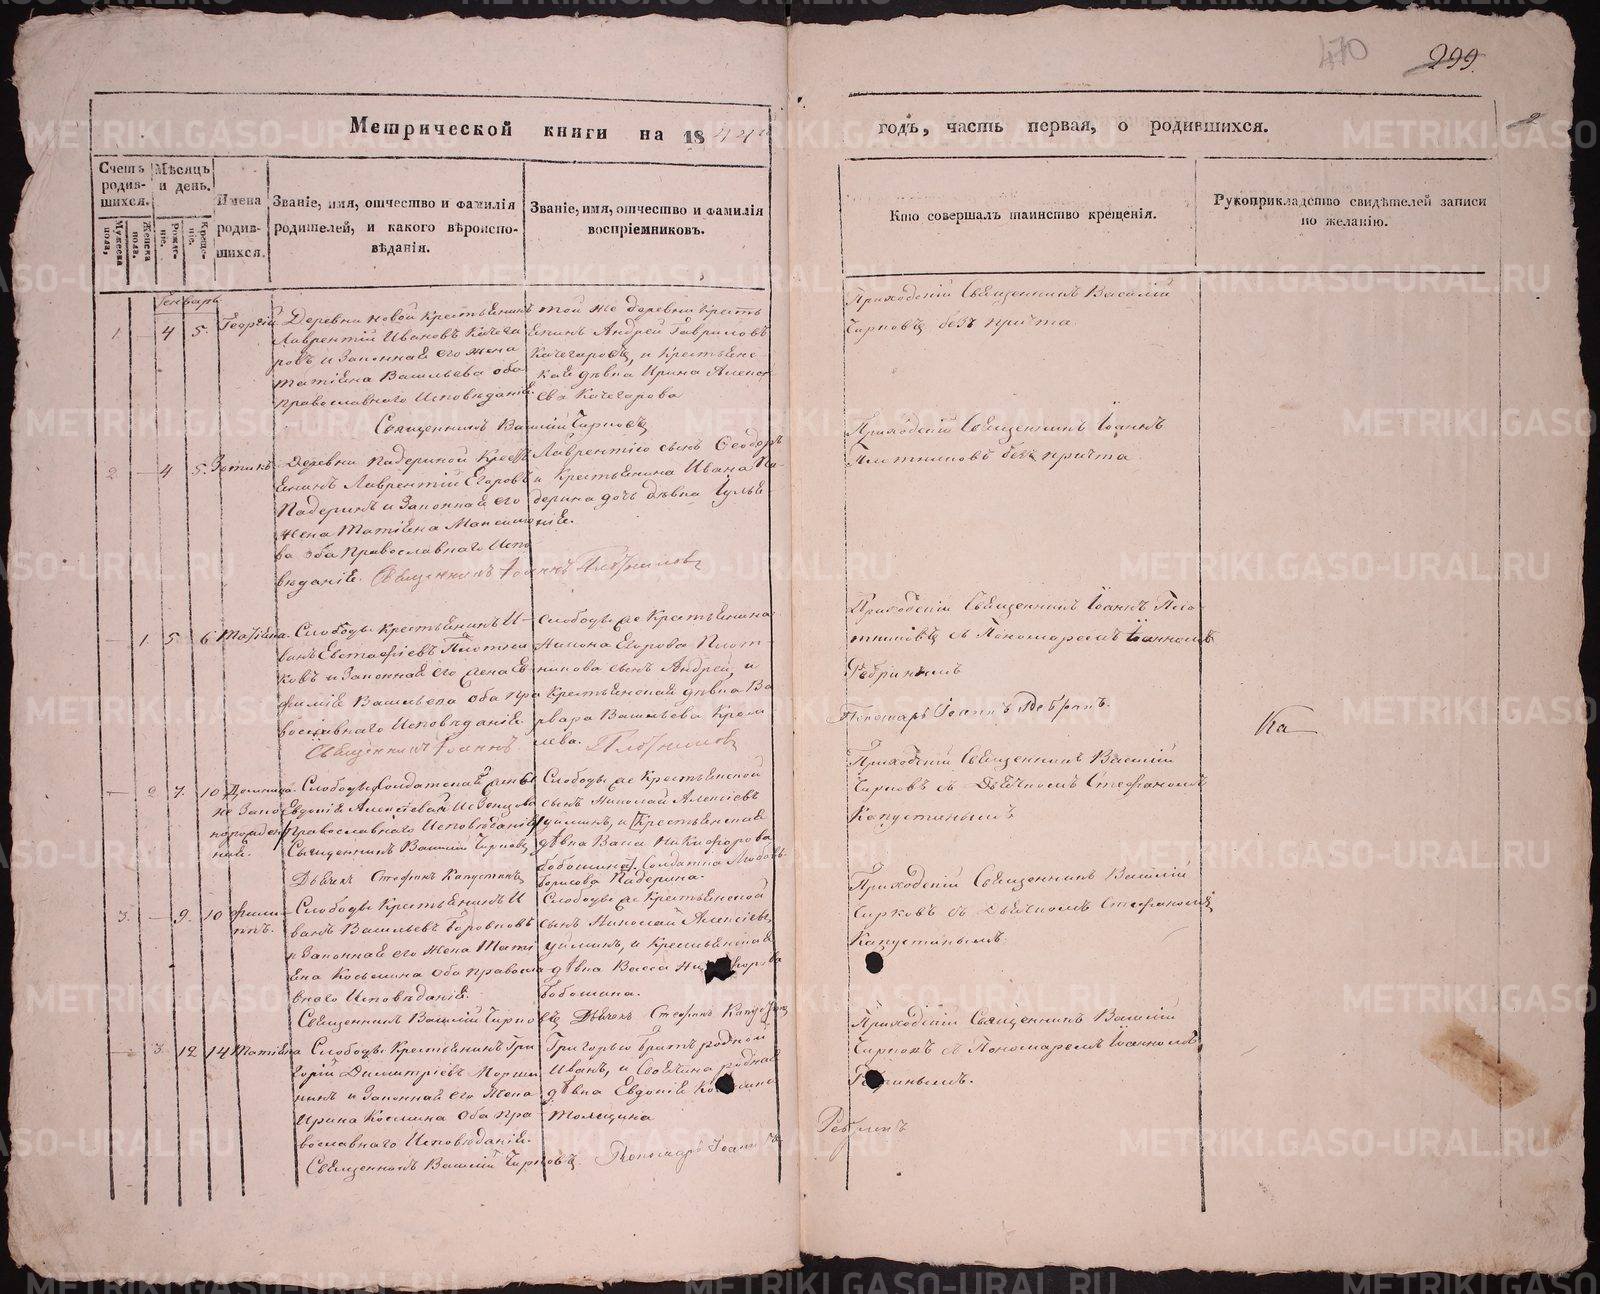 470
299.
2
Метрической книги на 1844й
годъ, часть первая, о родившихся.
Счетъ родив-шихся.
Мужеска пола,
Женска пола.
Мѣсяцъ и день.
Рожде-ніе.
Креще-ніе.
Имена родив-шихся.
Званіе, имя, отчество и фамилія родителей, и какого вѣроиспо-вѣданія.
Званіе, имя, отчество и фамилія воспріемниковъ.
Кто совершалъ таинство крещенія.
Рукоприкладство свидѣтелей записи по желанію.
Генварь
1. — 4 5. Георгій
Деревни Новой Крестьянинъ
Лаврентій Ивановъ Кочега
ровъ и Законная его жена
Татіяна Васильева оба
православнаго Исповѣданія.
той же деревни Кресть
янинъ Андрей Гавриловъ
Кочегаровъ, и Крестьянс
кая дѣвка Ирина Алексѣ
ева Кочегарова
Священникъ Василій Чирковъ
Приходскій Священникъ Василій
Чирковъ безъ причта
2 — 4 5. Зотикъ
Деревни Падериной Крест
янинъ Лаврентій Егоровъ
Падеринъ и Законная его
жена Татіяна Максимо
ва оба Православнаго Испо
вѣданія.
Лаврентію сынъ Феодоръ
и Крестьянина Ивана Па
дерина дочь дѣвка Іулья
нія.
Священникъ Іоаннъ Плотниковъ
Приходскій Священникъ Іоаннъ
Плотниковъ безъ причта
— 1. 5 6 Татіяна.
Слободы Крестьянинъ И
ванъ Евстафіевъ Плотни
ковъ и Законная его жена Ев
фимія Васильева Оба пра
вославнаго Исповѣданія
Слободы же Крестьянина
Никона Егорова Плот
никова сынъ Андрей, и
Крестьянская дѣвка Ва
рвара Васильева
лева.
Священникъ Іоаннъ Плотниковъ
Приходскій Священникъ Іоаннъ Пло
тниковъ съ Пономаремъ Іоанномъ
Ребринымъ
Пономарь Іоаннъ Ребринъ.
— 2 7. 10 Домника.
не Зако
норожден
ная.
Слободы Солдатская жена
Евдокія Алексѣева
Православнаго Исповѣданія
Священникъ Василій Чирковъ
Дьячекъ Стефанъ Капустинъ
Слободы же Крестьянской
сынъ Николай Алексіевъ
и Крестьянская
дѣвка Васса Никифорова
Бобошина Солдатка Любовь
Борисова Падерина.
Приходскій Священникъ Василій
Чирковъ съ Дьячкомъ Стефаномъ
Капустинымъ
3. — 9. 10 Филиппъ.
Слободы Крестьянинъ И
ванъ Васильевъ Боровковъ
и Законная его жена Тати
яна Косьмина Оба Правосла
внаго Исповѣданія.
Слободы же Крестьянской
сынъ Николай Алексіевъ
и Крестьянская
дѣвка Васса Никифорова
Бобошина.
Священникъ Василій Чирковъ Дьячекъ Стефанъ Капустинъ
Приходскій Священникъ Василій
Чирковъ съ Дьячкомъ Стефаномъ
Капустинымъ
— 3. 12 14 Татіяна
Слободы Крестьянинъ Гри
горій Димитріевъ
и Законная его жена
Ирина Косьмина Оба пра
вославнаго Исповѣданія.
Григорью братъ родной
Иванъ, и родная
дѣвка Евдокія
Священникъ Василій Чирковъ. Пономарь Іоаннъ
Ребринъ
Приходскій Священникъ Василій
Чирковъ съ Пономаремъ Іоанномъ
Ребринымъ.
Ка
METRIKI.GASO-URAL.RU